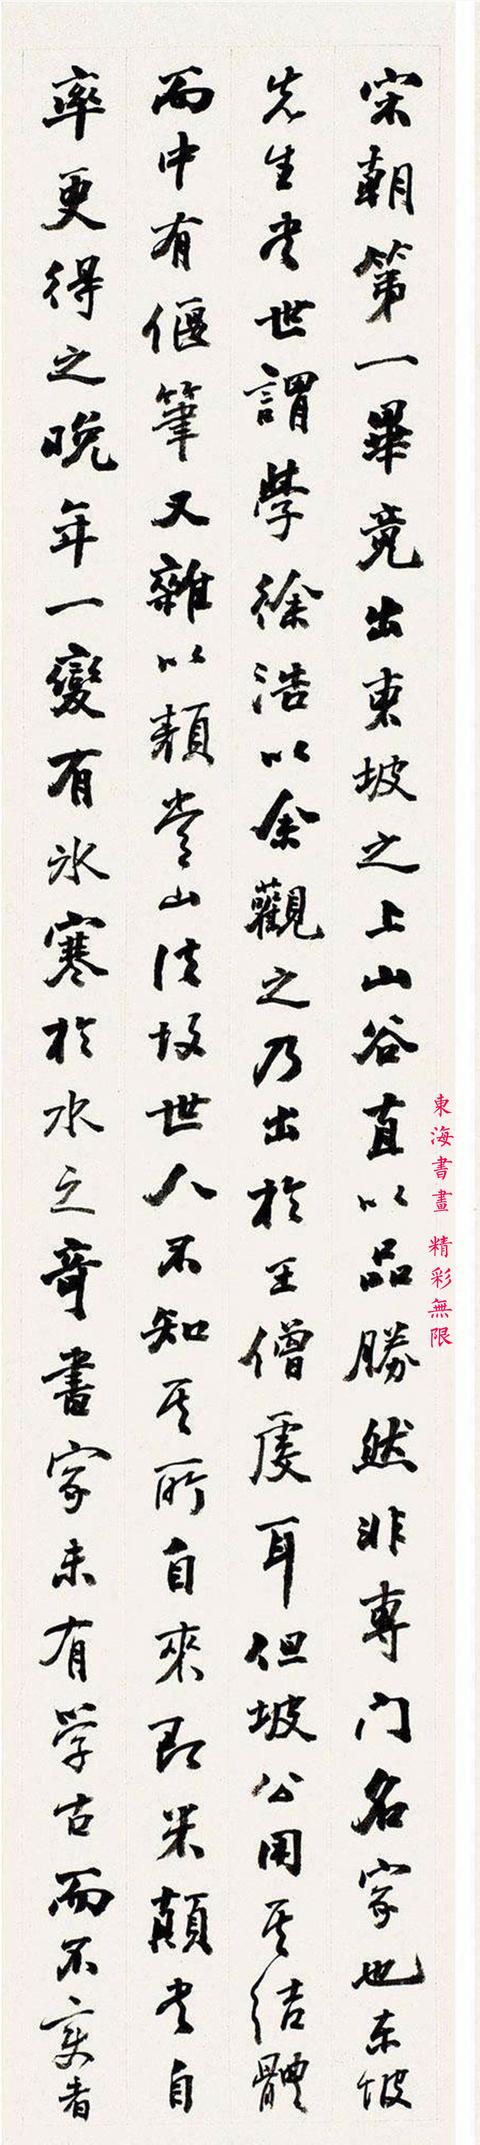 宋朝第一畢竟出東坡之上山谷直以品勝然非專门名家也东坡
先生書世謂學徐浩以余觀之乃出於王僧虔耳但坡公用其結體
而中有偃筆又雜以顏常山法故世人不知其所自來即米顛書自
率更得之晚年一變有冰寒於水之奇書家未有学古而不变者
東海書畫 精彩無限